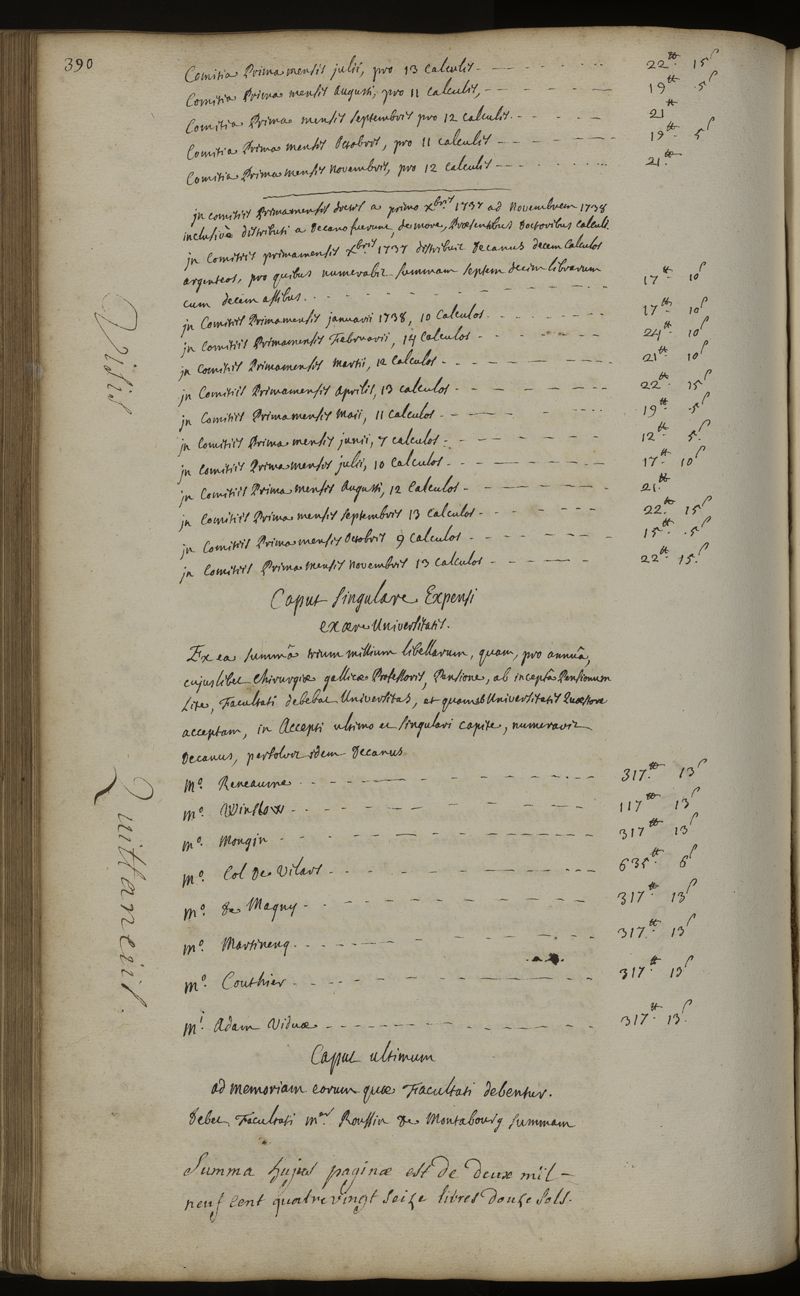 390
Comitia Prima mensis julii, pro 13 calculis 22tt 15s
Comitia Prima mensis Augusti, pro 11 calculis, 19tt 5s
Comitia Prima mensis septembris pro 12 calculis 21tt
Comitia Prima mensis Octobris, pro 11 calculis 19tt 5s
Comitia Prima mensis novembris, pro 12 calculis 21tt
jn comitiis Primamensis docvis a primo xbris 1737 ad Novembrem 1738
inclusivè distributi a Decano fuerunt, de more, Praesentibus Doctoribus calculi.
jn Comitiis primamensis xbris 1737 distribuit Decanus decem Calculos
argenteos, pro quibus numerabit summam septem decim librarum
cum decem assibus. 17tt 10s
jn Comitiis Primamensis januarii 1738, 10 Calculos 17tt 10s
jn Comitiis Primamensis Februarii, 14 Calculos 24tt 10s
jn Comitiis Primamensis Martii, 12 Calculos 21tt 10s
jn Comitiis Primamensis Aprilis, 13 calculos 22tt 15s
jn Comitiis Primamensis Maii, 11 Calculos 19tt 5s
jn Comitiis Prima mensis junii, 7 calculos 12tt 5s
jn Comitiis Prima mensis julii, 10 Calculos 17tt 10s
jn Comitiis Prima mensis Augusti, 12 Calculos 21tt
jn Comitiis Prima mensis septembris 13 calculos 22tt 15s
jn Comitiis Prima mensis Octobris 9 calculos 15tt 5s
jn Comitiis Prima mensis novembris 13 calculos 22tt 15s
Visis
Caput singulare Expensi
ex aere Universitatis.
Ex ea summâ trium millium libellarum, quam, pro annuâ,
cujuslibet chirurgiae gallicae Professoris, Pensione, ab inceptâ Pensionum
Lite, Facultati debebat Universitas, et quam ab Universitatis Quaestore
acceptam, in Accepti ultimo et singulari capite, numeravit
Decanus, persolvit idem Decanus
Mo. Reneaume 317tt 13s
Mo. Winslow 117tt 13s
Mo. Mongin 317tt 13s
Mo. Col De Vilars 635tt 6s
Mo. De Magny 317tt 13s
Mo. Martinenq 317tt 13s
Mo. Couthier 317tt 13s
Mi. Adam Viduae 317tt 13s
Quittanciis.
Caput ultimum
ad memoriam eorum quae Facultati debentur.
Debet Facultati mer Roussin De Montabourg summam
Summa hujus paginae est de deux mil
neuf cent quatre vingt seize livres douze sols.